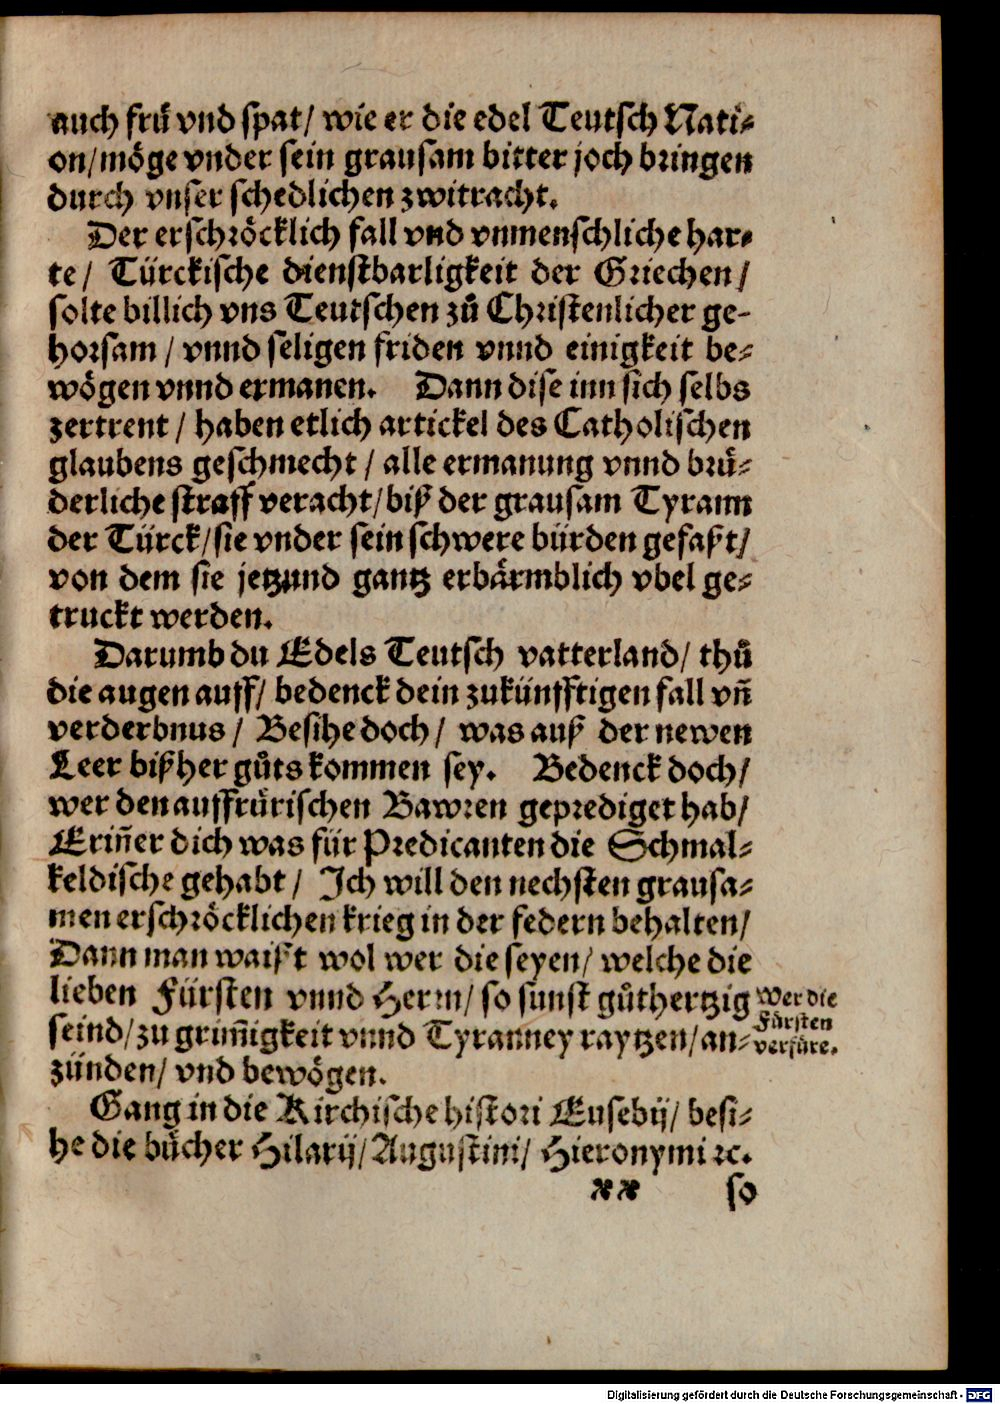 auch frü vnd spat/ wie er die edel Teutsch Nati⸗
on/möge vnder sein grausam bitter joch bringen
durch vnser schedlichen zwitracht.
Der erschröcklich fall vnd vnmenschliche har⸗
te/ Türckische dienstbarligkeit der Griechen/
solte billich vns Teutschen zů Christenlicher ge-
horsam/ vnnd seligen friden vnnd einigkeit be⸗
wögen vnnd ermanen. Dann dise inn sich selbs
zertrent/ haben etlich artickel des Catholischen
glaubens geschmecht/ alle ermanung vnnd brü⸗
derliche straff veracht/biß der grausam Tyrann
der Türck/sie vnder sein schwere bürden gefaßt/
von dem sie jetzund gantz erbärmblich vbel ge⸗
truckt werden.
Darumb du Edels Teutsch vatterland/ thů
die augen auff/ bedenck dein zukünfftigen fall vñ
verderbnus/ Besihe doch/ was auß der newen
Leer bißher gůts kommen sey. Bedenck doch/
wer den auffrürischen Bawren geprediget hab/
Eriñer dich was für Predicanten die Schmal⸗
keldische gehabt/ Ich will den nechsten grausa⸗
men erschröcklichen krieg in der federn behalten/
Dann man waißt wol wer die seyen/ welche die
lieben Fürsten vnnd Herrn/ so sunst gůthertzig
seind/zu grim̃igkeit vnnd Tyranney raytzen/an⸗
zünden/ vnd bewögen.
Wer die
Fürsten
verfüre.
Gang in die Kirchische histori Eusebij/ besi⸗
he die bücher Hilarij/Augustini/ Hieronymi ꝛc.
** so
Digitalisierung gefördert durch die Deutsche Forschungsgemeinschaft - DFG